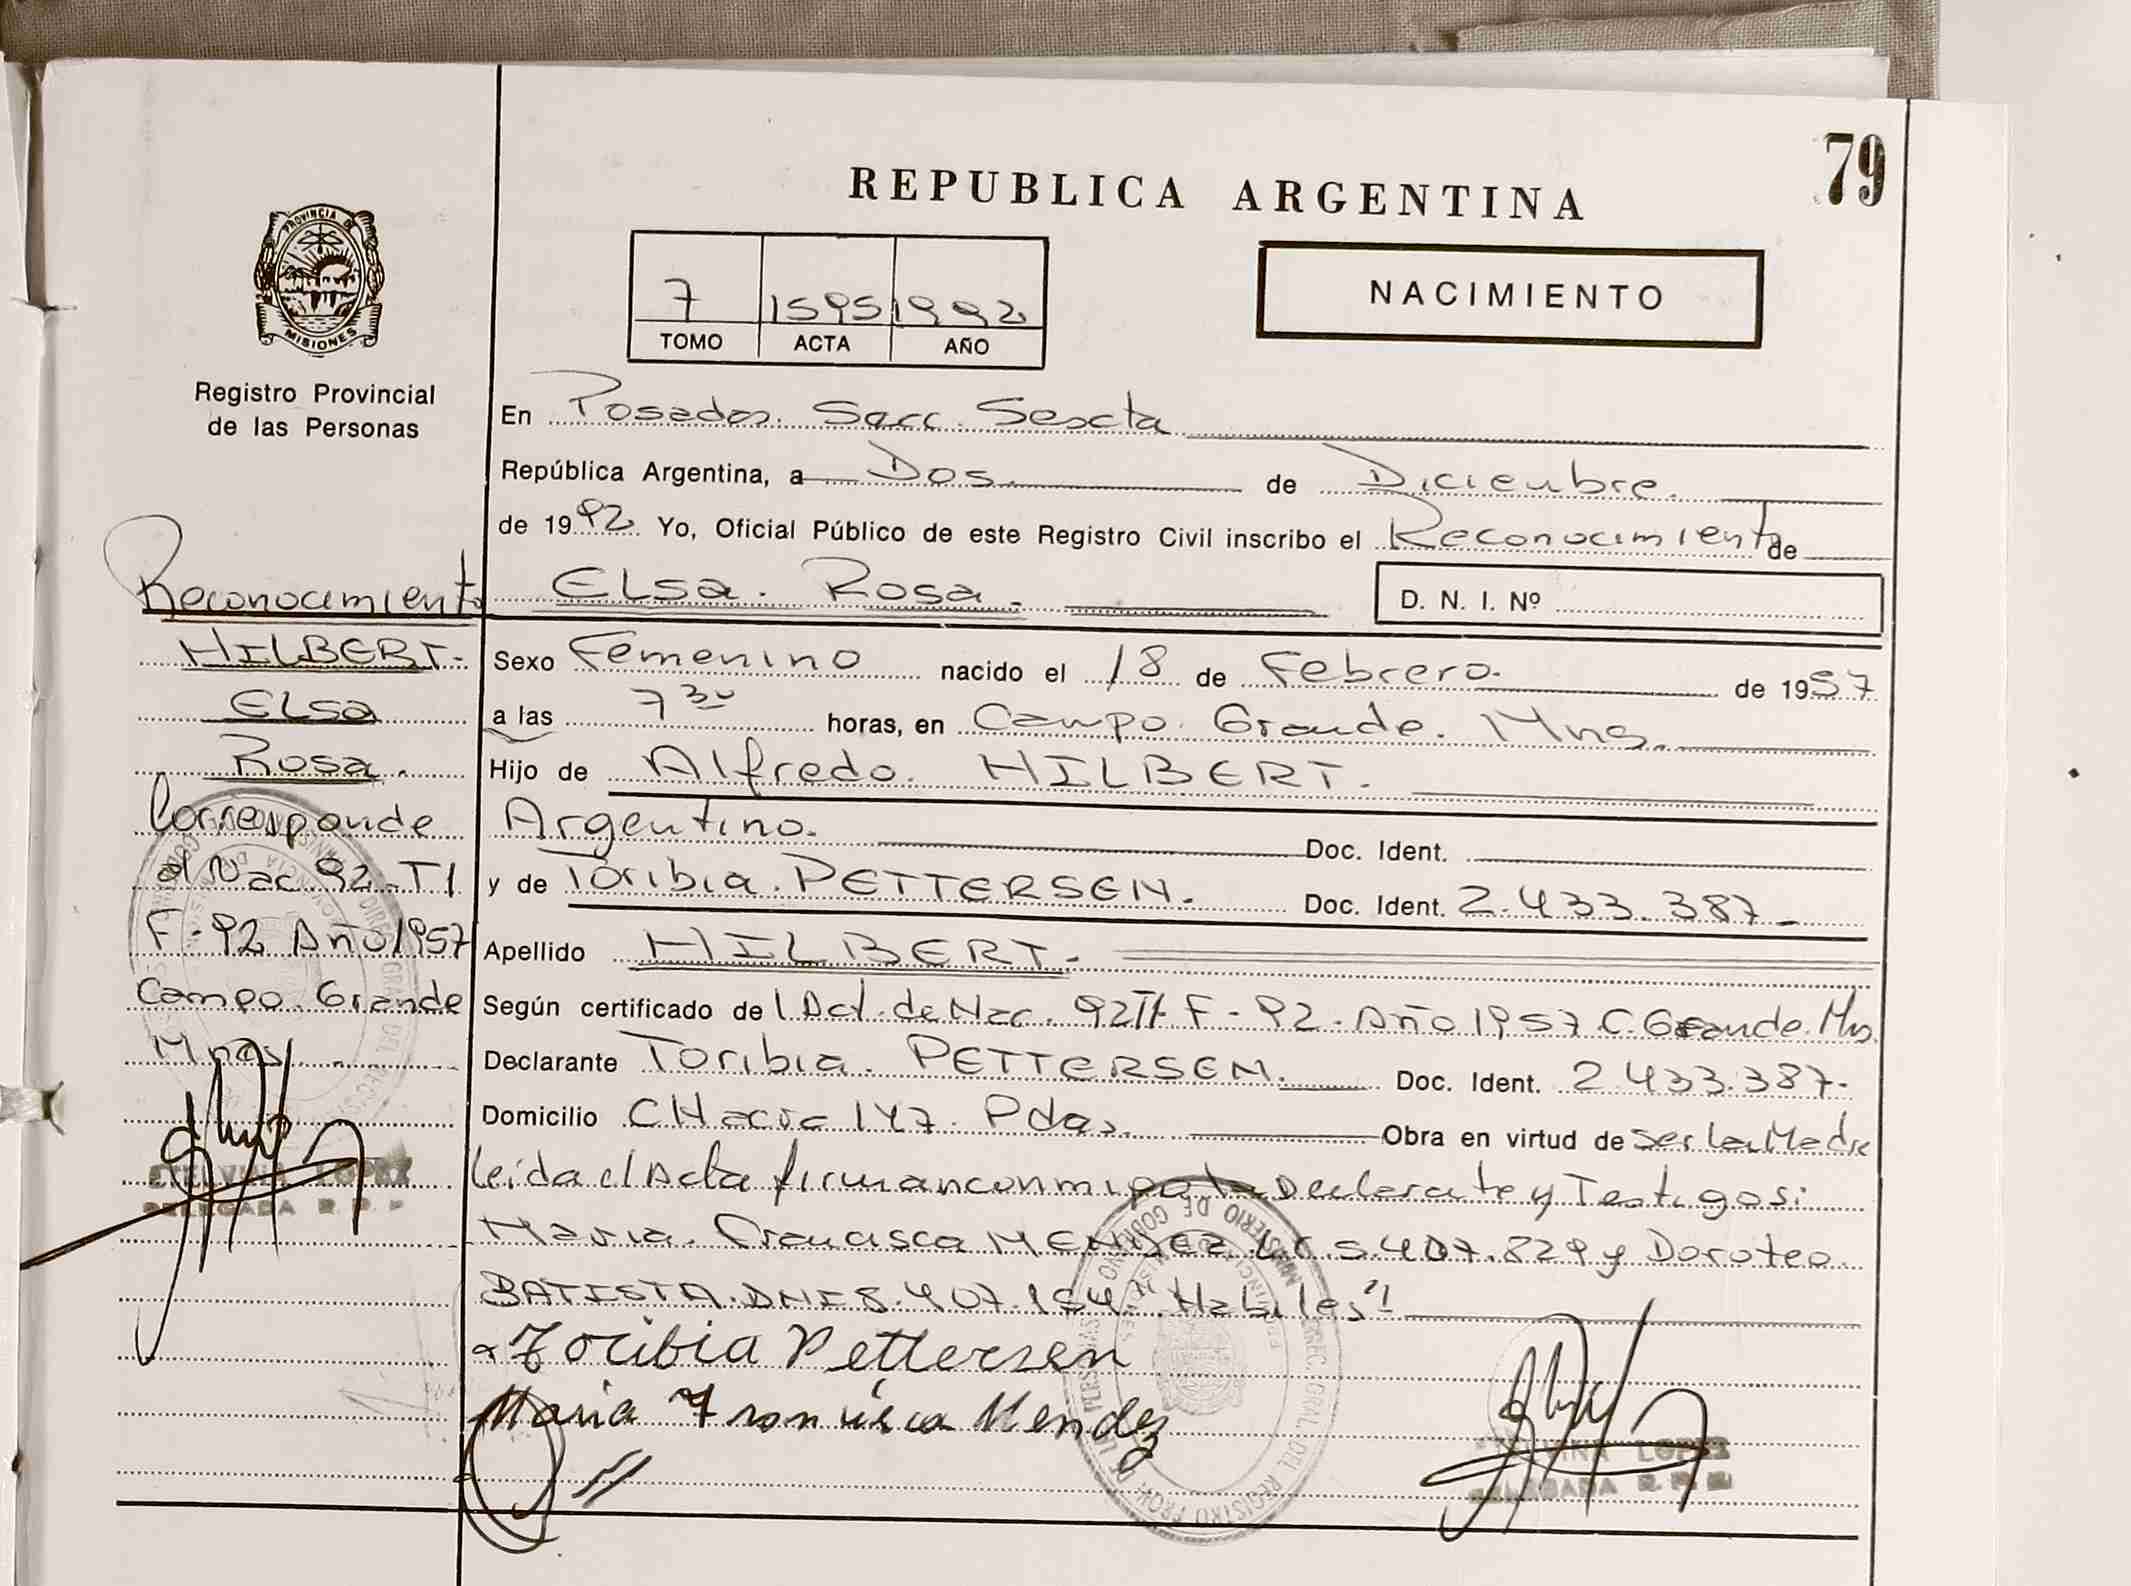 79
REPUBLICA ARGENTINA
PROVINCIA DE
MISIONES
7 1595 1992
TOMO ACTA AÑO
NACIMIENTO
Registro Provincial
de las Personas
En Posadas. Secc. Sexta
República Argentina, a Dos. de Diciembre.
de 1992. Yo, Oficial Público de este Registro Civil inscribo el Reconocimiento de
ELsa. Rosa. D. N. I. Nº
Reconocimiento
HILBERT.-
ELsa
Rosa.
Corresponde
al Nac 92-T1
F-92 Año 1957
Campo. Grande
Mnes.
Sexo Femenino nacido el 18 de Febrero. de 1957
a las 7 30 horas, en Campo. Grande. Mns.
Hijo de Alfredo. HILBERT.
Argentino. Doc. Ident.
y de Toribia. PETTERSEN. Doc. Ident. 2.433.387.-
Apellido HILBERT.-
Según certificado de Act. de Nac. 92 F-92. Año 1957 C. Grande. Mns.
Declarante Toribia. PETTERSEN. Doc. Ident. 2.433.387.-
Domicilio CHacra 147. Pdas. Obra en virtud de ser la Madre
leida el Acta firman con migo la Declarate y Testigos:
Maria. Francisca MENDEZ. LC 5.407.829 y Doroteo
BATISTA. DNI 8.407.154. "Habiles"
Toribia Pettersen
Maria Francisca Mendez
ETELVINA LOPEZ
DELEGADA R. P. P.
ETELVINA LOPEZ
DELEGADA R. P. P.